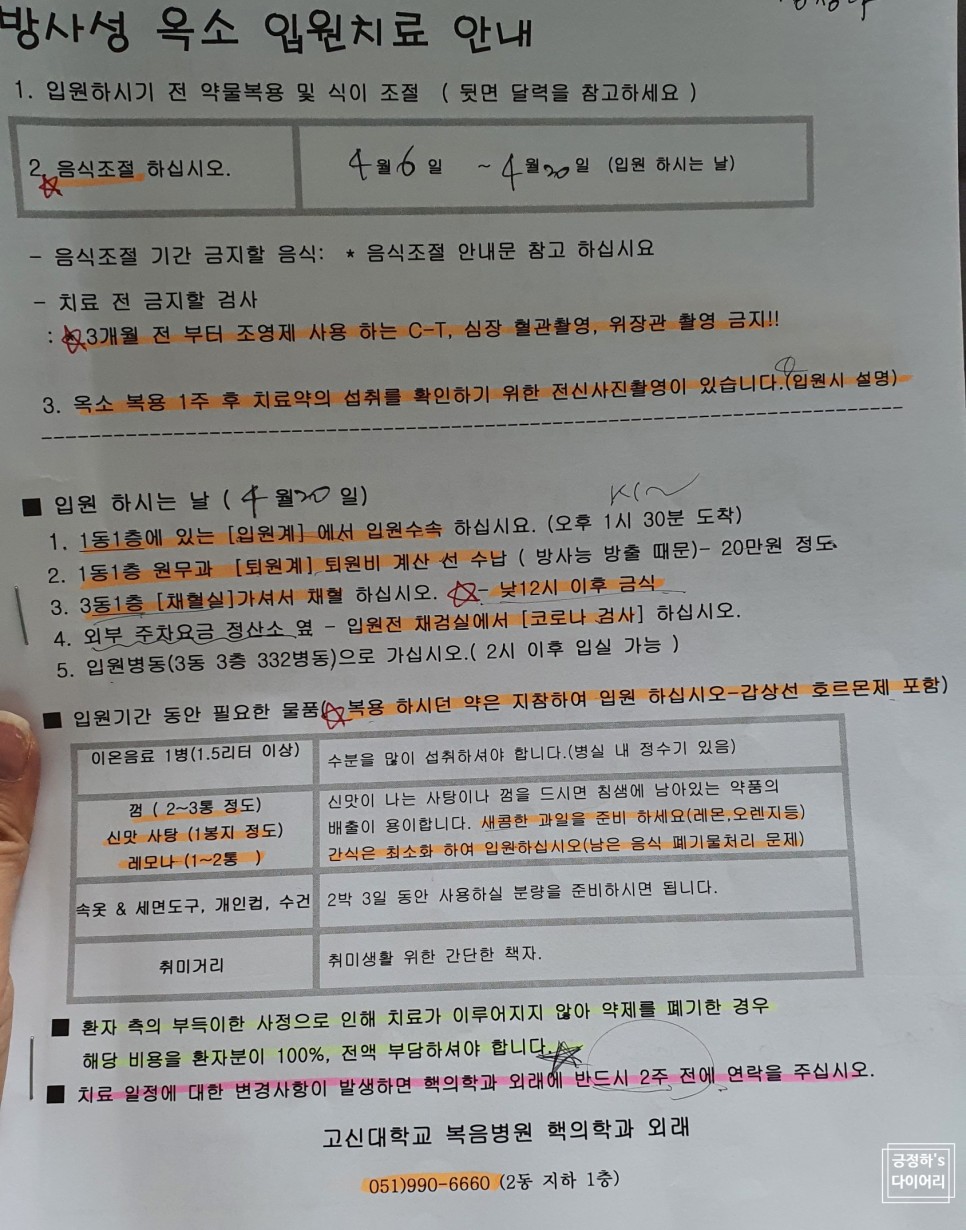 방사성 옥소 입원치료 안내
1. 입원하시기 전 약물복용 및 식이 조절 ( 뒷면 달력을 참고하세요 )
2. 음식조절 하십시오. 4월 6일 ~ 4월 20일 (입원 하시는 날)
- 음식조절 기간 금지할 음식: * 음식조절 안내문 참고 하십시요
- 치료 전 금지할 검사
: 3개월 전 부터 조영제 사용 하는 C-T, 심장 혈관촬영, 위장관 촬영 금지!!
3. 옥소 복용 1주 후 치료약의 섭취를 확인하기 위한 전신사진촬영이 있습니다.(입원시 설명)
■ 입원 하시는 날 ( 4월 20일)
1. 1동1층에 있는 [입원계] 에서 입원수속 하십시요. (오후 1시 30분 도착)
2. 1동1층 원무과 [퇴원계] 퇴원비 계산 선 수납 ( 방사능 방출 때문)- 20만원 정도
3. 3동1층 [채혈실]가셔서 채혈 하십시오. - 낮12시 이후 금식
4. 외부 주차요금 정산소 옆 - 입원전 채검실에서 [코로나 검사] 하십시오.
5. 입원병동(3동 3층 332병동)으로 가십시오.( 2시 이후 입실 가능 )
■ 입원기간 동안 필요한 물품( 복용 하시던 약은 지참하여 입원 하십시오-갑상선 호르몬제 포함)
이온음료 1병(1.5리터 이상) 수분을 많이 섭취하셔야 합니다.(병실 내 정수기 있음)
껌 ( 2~3통 정도)
신맛 사탕 (1봉지 정도)
레모나 (1~2통 )
신맛이 나는 사탕이나 껌을 드시면 침샘에 남아있는 약품의
배출이 용이합니다. 새콤한 과일을 준비 하세요(레몬,오렌지등)
간식은 최소화 하여 입원하십시오(남은 음식 폐기물처리 문제)
속옷 & 세면도구, 개인컵, 수건 2박 3일 동안 사용하실 분량을 준비하시면 됩니다.
취미거리 취미생활 위한 간단한 책자.
■ 환자 측의 부득이한 사정으로 인해 치료가 이루어지지 않아 약제를 폐기한 경우
해당 비용을 환자분이 100%, 전액 부담하셔야 합니다.
■ 치료 일정에 대한 변경사항이 발생하면 핵의학과 외래에 반드시 2주 전에 연락을 주십시오.
고신대학교 복음병원 핵의학과 외래
051)990-6660 (2동 지하 1층)
긍정하's
다이어리